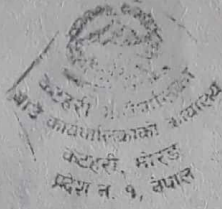 कटहरी गाउँपालिका
वडा कार्यपालिकाको कार्यालय
कटहरी, मोरङ
प्रदेश नं. १, नेपाल